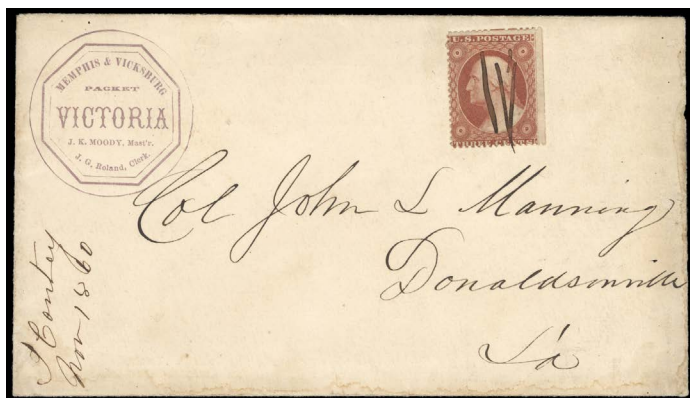 MEMPHIS & VICKSBURG
PACKET
VICTORIA
J. K. MOODY, Mast'r.
J. G. Roland, Clerk.
U.S. POSTAGE
THREE CENTS
Col John L Manning
Donaldsonville
La
Nov 1860